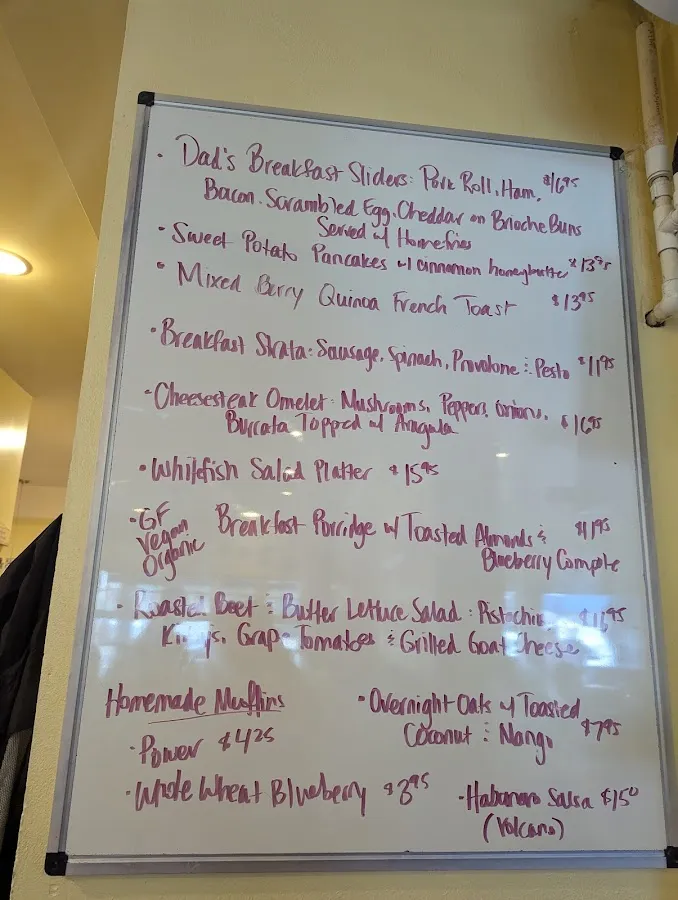 · Dad's Breakfast Sliders: Pork Roll, Ham, $16⁹⁵
Bacon. Scrambled Egg. Cheddar on Brioche Buns
Served w/ Homefries
· Sweet Potato Pancakes w/ cinnamon honeybutter $13⁹⁵
· Mixed Berry Quinoa French Toast $13⁹⁵
· Breakfast Strata: Sausage, Spinach, Provolone & Pesto $11⁹⁵
· Cheesesteak Omelet: Mushrooms, Peppers, Onions, $16⁹⁵
Burrata Topped w/ Arugula
· Whitefish Salad Platter $15⁹⁵
· GF Breakfast Porridge w/ Toasted Almonds &
Vegan Blueberry Compote
Organic
· Roasted Beet & Butter Lettuce Salad: Pistachio
Grape Tomatoes & Grilled Goat Cheese
Homemade Muffins
· Power $4²⁵
· Whole Wheat Blueberry $3⁹⁵
· Overnight Oats w/ Toasted
Coconut & Mango $7⁹⁵
· Habanero Salsa $1⁵⁰
(Volcano)